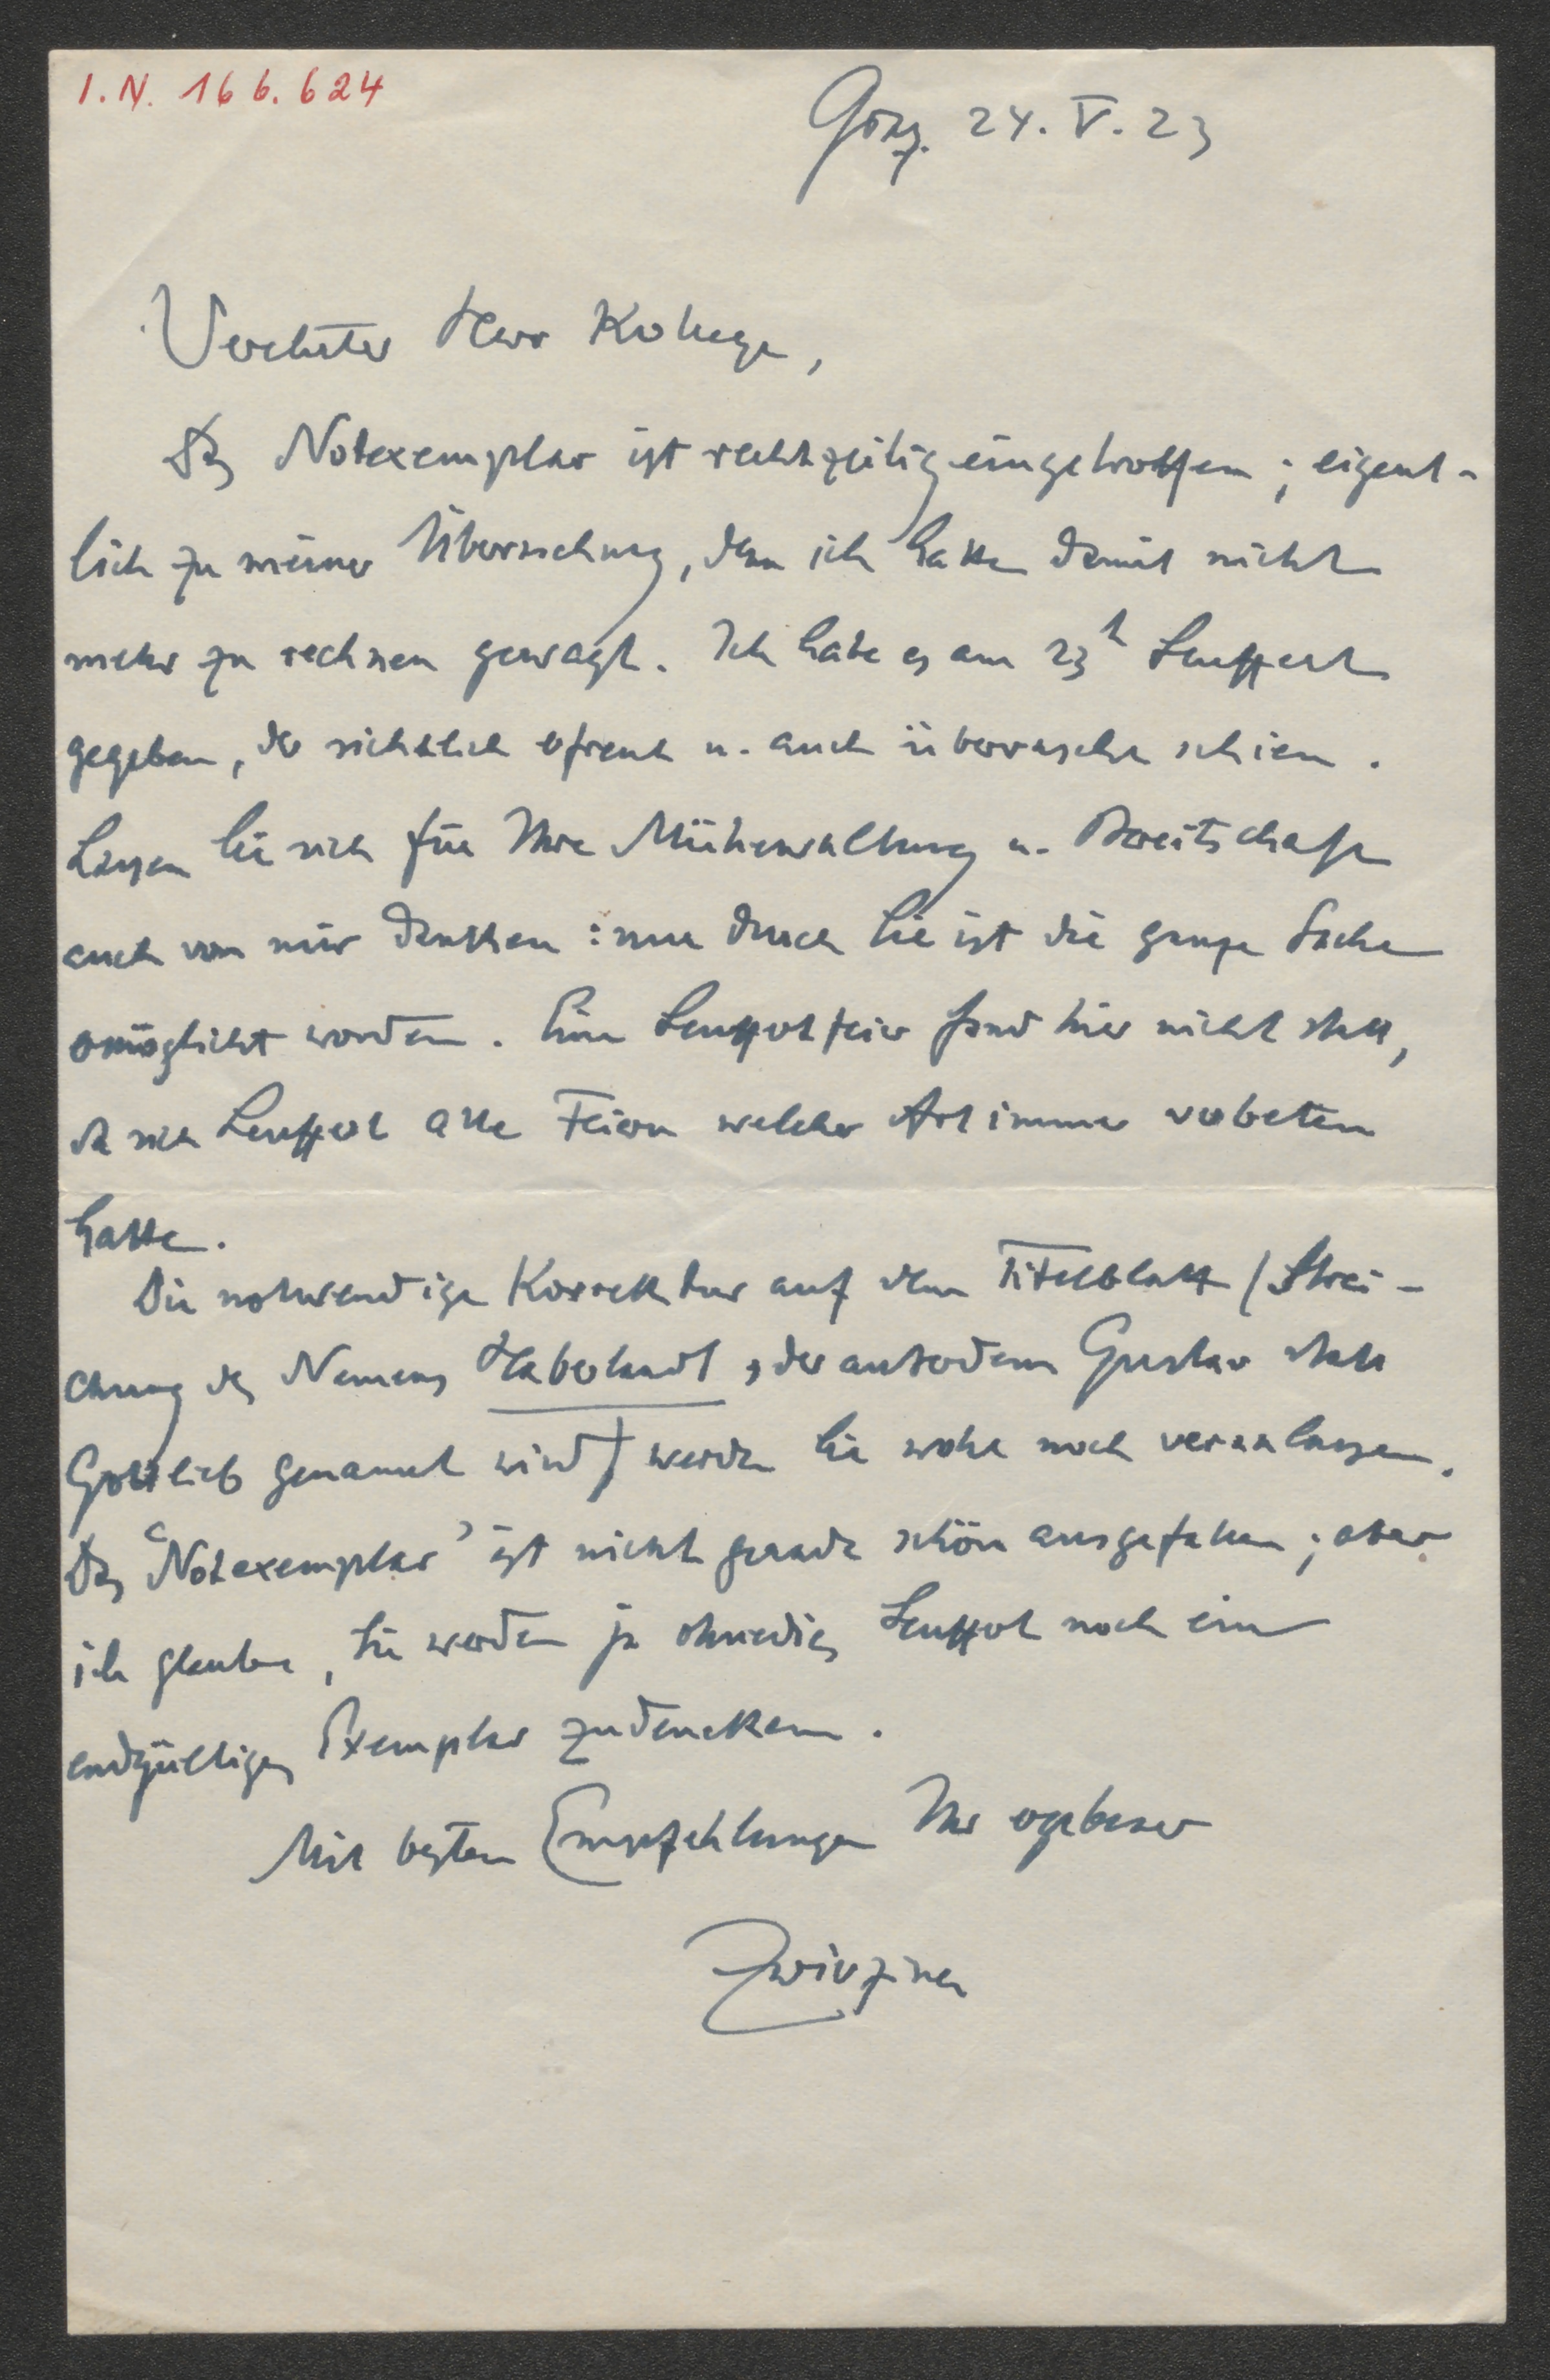 I.N. 166.624
Graz. 24. V. 23
Verehrter Herr Kollege,
Das Notexemplar ist rechtzeitig eingetroffen; eigent-
lich zu meiner Überraschung, denn ich hatte damit nicht
mehr zu rechnen gewagt. Ich habe es am 23t Seuffert
gegeben, der sichtlich erfreut u. auch überrascht schien.
Lassen Sie sich für Ihre Mühewaltung u. Bereitschaft
auch von mir danken: nur durch Sie ist die ganze Sache
ermöglicht worden. Eine Seuffertfeier fand hier nicht statt,
da sich Seuffert alle Feiern welcher Art immer verbeten
hatte.
Die notwendige Korrektur auf dem Titelblatt / Strei-
chung des Namens Haberlandt, der außerdem Gustav statt
Gottlieb genannt wird / werden Sie wohl noch veranlassen.
Das 'Notexemplar' ist nicht gerade schön ausgefallen; aber
ich glaube, Sie werden ja ohnedies Seuffert noch ein
endgültiges Exemplar zudenken.
Mit besten Empfehlungen Ihr ergebener
Zwierzina